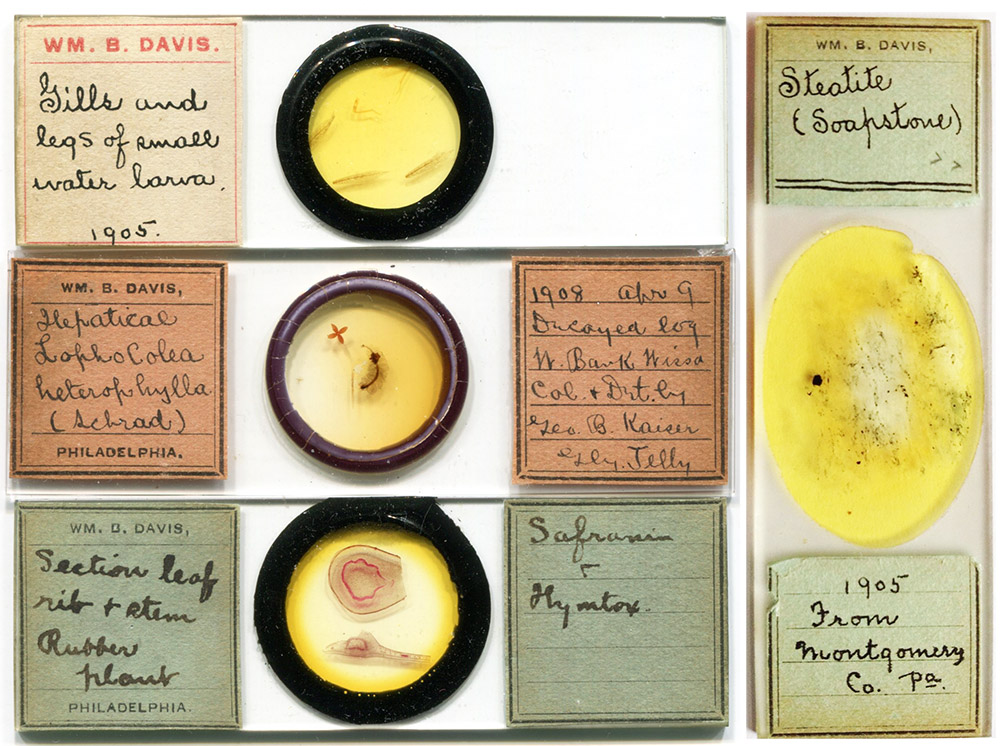 WM. B. DAVIS.
Gills and
legs of small
water larva.
1905.
WM. B. DAVIS,
Hepaticae
LophoColea
heterophylla
(Schrad)
PHILADELPHIA.
1908 Apr 9
Decayed log
W. Bank Wissa
Col. & Det. by
Geo. B. Kaiser
Gly. Jelly
WM. B. DAVIS,
Section leaf
rib & stem
Rubber
plant
PHILADELPHIA.
Safranin
&
WM. B. DAVIS,
Steatite
(Soapstone)
1905
From
Montgomery
Co. Pa.